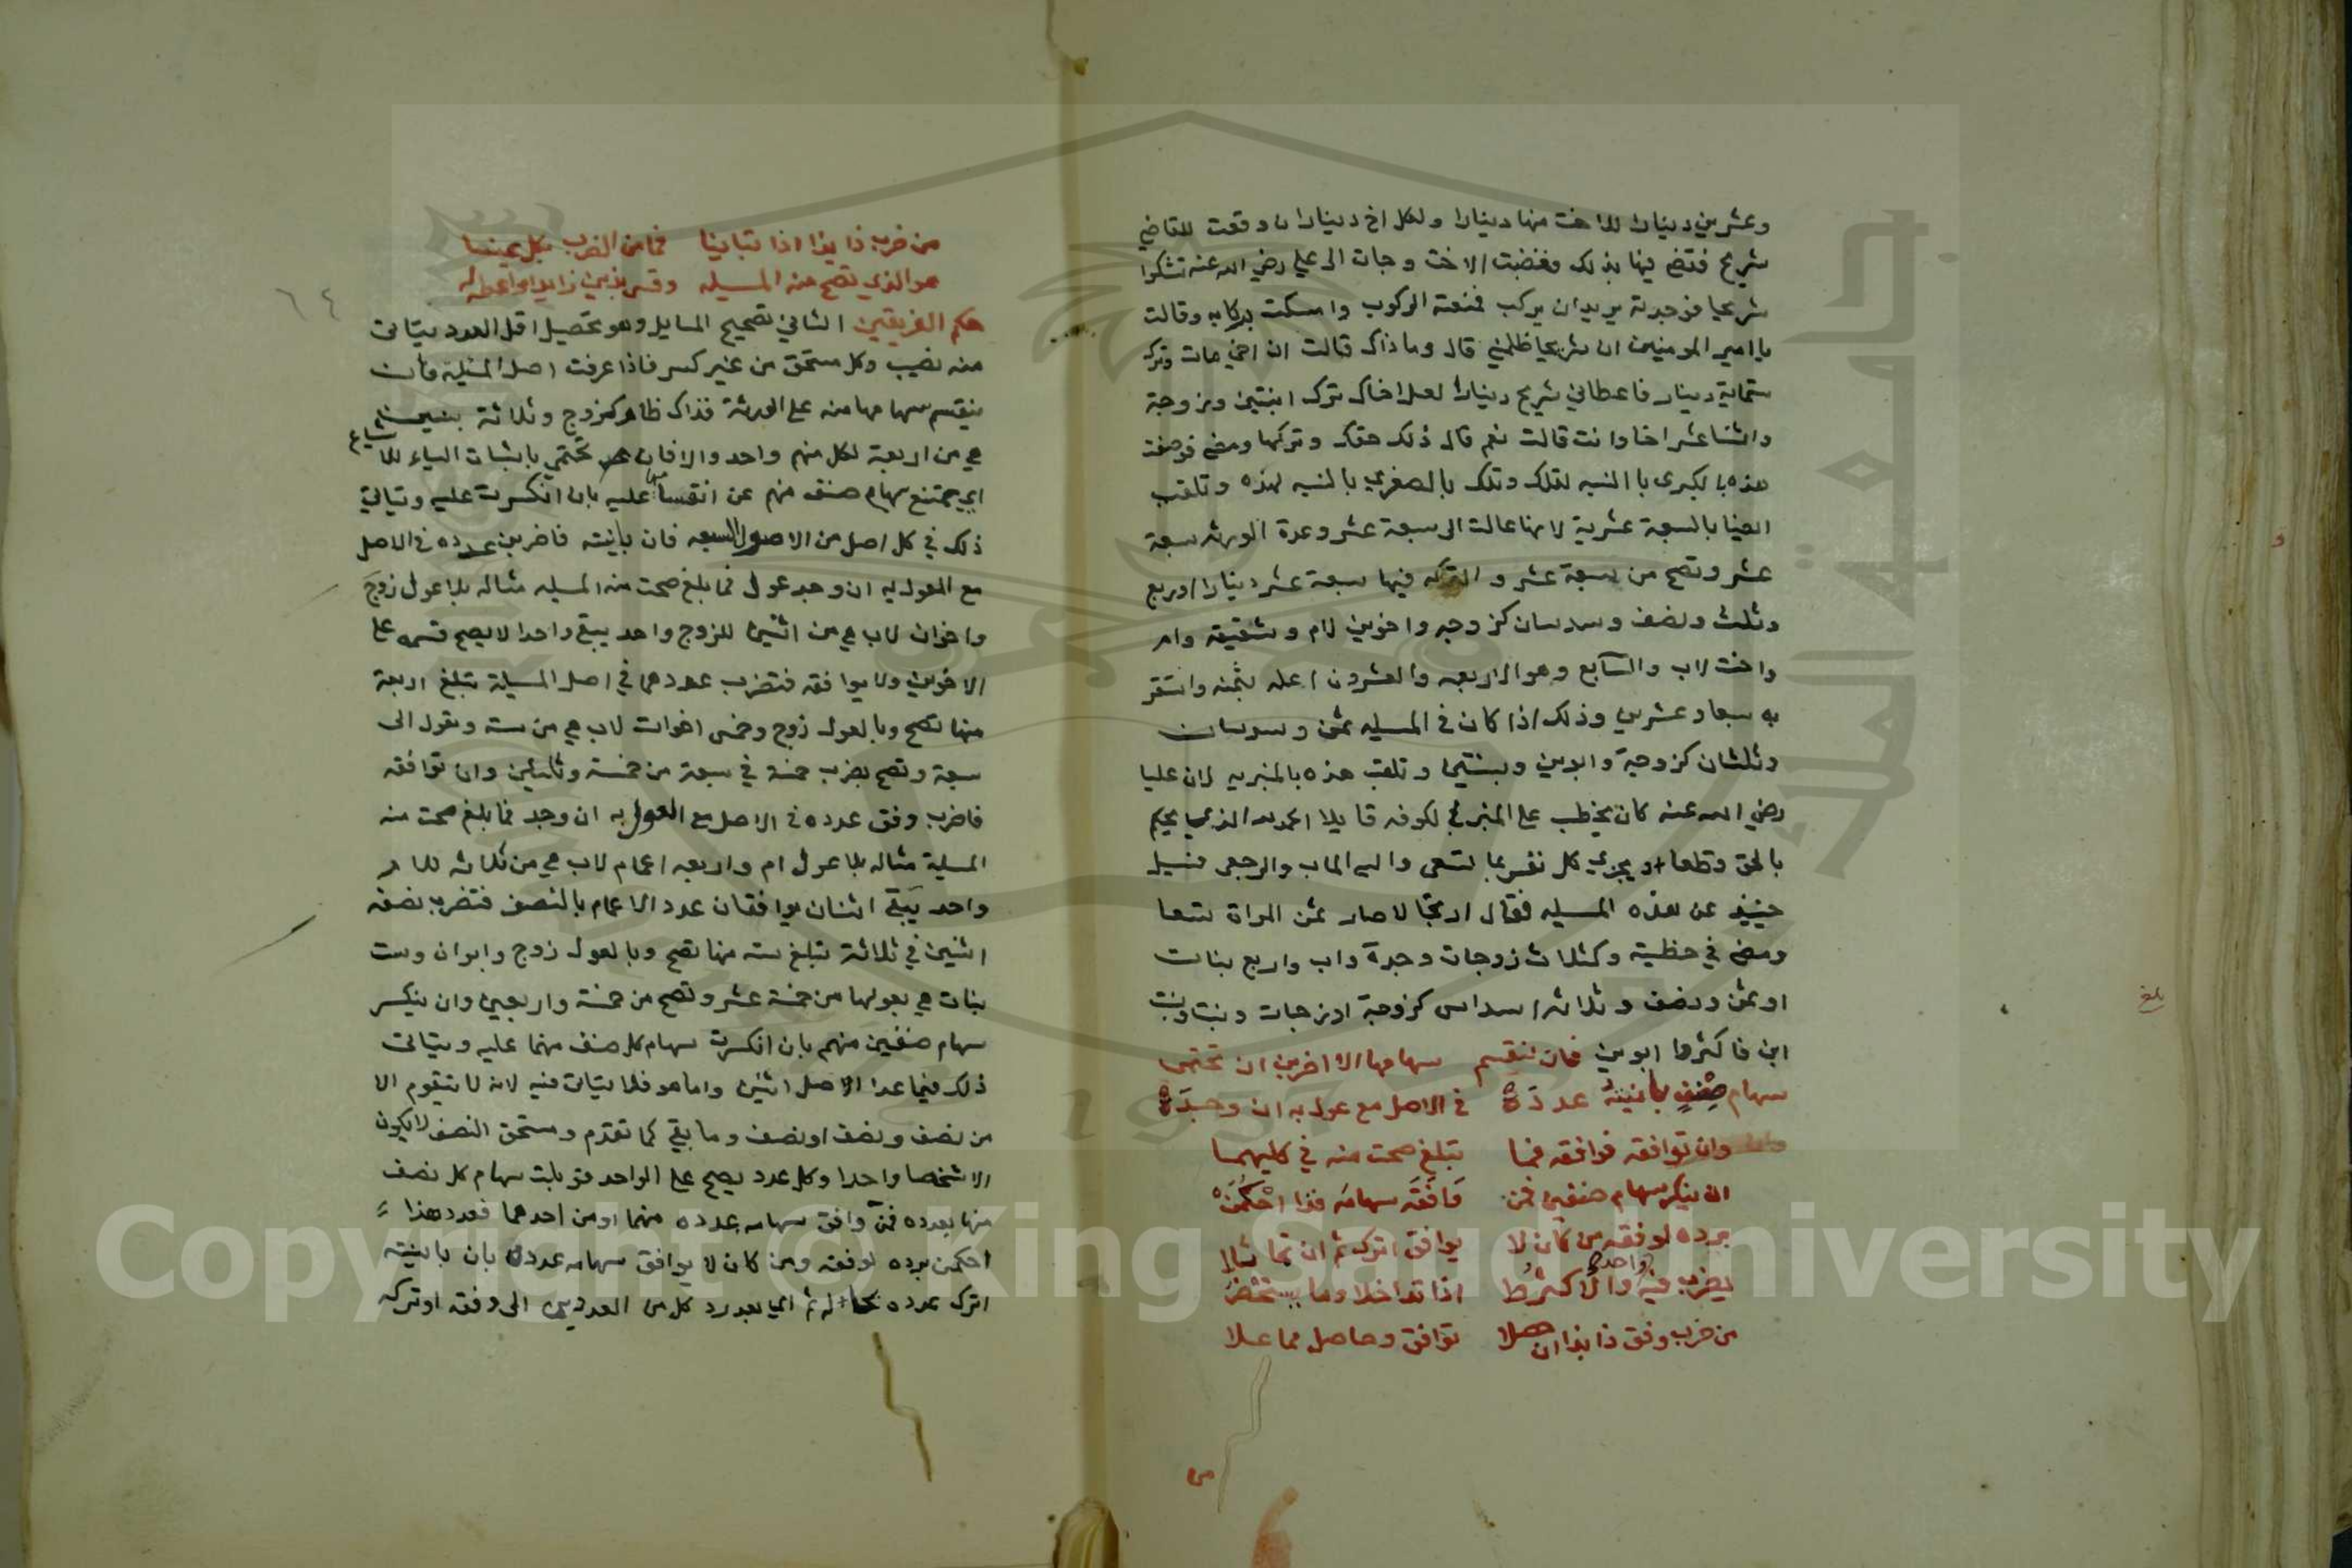 وعشرين دينارا للاخت منها دينارا ولكل اخ ديناران وقعت للقاضي
شريح فقضى فيها بذلك فغضبت الاخت وجات الى علي رضي الله عنه تشكوا
شريحا فوجدته يريد ان يركب فمنعته الركوب وامسكت بركابه وقالت
يا امير المومنين ان شريحا ظلمني قال وما ذاك قالت ان اخي مات وترك
ستماية دينار فاعطاني شريح دينارا لعل اخاك ترك ابنتين وزوجة
واثنا عشر اخا وانت قالت نعم قال ذلك حقك وتركها ومضى فوصفت
هذه بالكبرى با النسبه لتلك وتلك بالصغرى بالنسبه لهذه وتلقب
ايضا بالسبعة عشرية لانها عالت الى سبعة عشر وعدة الورثه سبعة
عشر وتصح من سبعة عشر والتركه فيها سبعة عشر دينارا او ربع
وثلث ونصف وسدسان كزوجه واخوين لام وشقيقه وام
واخت لاب والسابع وهو الاربعه والعشرون اعله بثمنه واستقر
به سبعا وعشرين وذلك اذا كان في المسيله ثمن وسدسان
وثلثان كزوجة وابوين وبنتين وتلقب هذه بالمنبريه لان عليا
رضي الله عنه كان يخطب على المنبر في الكوفه قايلا الحمد لله الذي يحكم
بالحق قطعا ويجزي كل نفس بما تسعى واليه الماب والرجعى فسيل
حينيذ عن هذه المسيله فقال ارتجالا صار ثمن المراة تسعا
ومضى في خطبته وكثلاث زوجات وجدة واب واربع بنات
او ثمن ونصف وثلاثة اسداس كزوجة او زوجات وبنت وبنت
ابن فاكثر وابوين فان تنقسم سهامها الا اخرين ان تحتمى
سهام صنف باينته عدده في الاصل مع عول به ان وجده
وان توافقه فوافقه فما تبلغ صحت منه في كليهما
ان ينكسر سهام صنفين فمن وافقه سهامه فذا احكمن
برده لوفقه من كان لا يوافق اترك ثم ان تماثلا
يضرب فيه واحد والاكثر ط اذا تداخلا وما يستحضر
من ضرب وفق ذا بذا ان حصلا توافق وحاصل مما علا
من ضرب ذا بذا اذا تباينا فما من الضرب بكل بينا
هو الذي تصح منه المسيله وقس بذين زايدا واعط له
٦٤
حكم الفريقين الثاني تصحيح المسايل وهو تحصيل اقل العدد يتاتى
منه نصيب وكل مستحق من غير كسر فاذا عرفت اصل المسيلة فان
ينقسم سهامها منه على الورثة فذاك ظاهر كزوج وثلاثة بنين
هي من اربعة لكل منهم واحد والا فان تحتمي باثبات الياء للاشباع
اي يمتنع سهام صنف منهم عن انقسامها عليه بان انكسرت عليه ويتاتى
ذلك في كل اصل من الاصول السبعه فان باينته فاضربن عدده في الاصل
مع العول به ان وجد عول فما بلغ صحت منه المسيله مثاله بلا عول زوج
واخوان لاب هي من اثنين للزوج واحد يبقى واحد لا يصح قسمه على
الاخوين ولا يوافقه فتضرب عددهما في اصل المسيلة تبلغ اربعة
منها تصح وبالعول زوج وخمس اخوات لاب هي من سته وتعول الى
سبعة وتصح بضرب خمسة في سبعة من خمسة وثلاثين وان توافقه
فاضرب وفق عدده في الاصل مع العول به ان وجد فما بلغ صحت منه
المسيلة مثاله بلا عول ام واربعه اعمام لاب هي من ثلاثه للام
واحد يبقى اثنان يوافقان عدد الاعمام بالنصف فتضرب نصفه
اثنين في ثلاثة تبلغ سته منها تصح وبالعول زوج وابوان وست
بنات هي بعولها من خمسة عشر وتصح من خمسة واربعين وان ينكسر
سهام صنفين منهم بان انكسرت سهام كل صنف منهما عليه ويتاتى
ذلك فيما عدا الاصل اثنين واما هو فلا يتاتى فيه لانه لا يتقوم الا
من نصف ونصف او نصف وما بقي كما تقدم ومستحق النصف لا يكون
الا شخصا واحدا وكل عدد يصح على الواحد قوبلت سهام كل نصف
منها بعدده فمن وافق سهامه عدده منهما او من احدهما فعدد هذا
احكمن برده لوفقه ومن كان لا يوافق سهامه عدده بان باينته
اترك عدده بحاله ثم اي بعد رد كل من العددين الى وفقه او تركه
بلغ